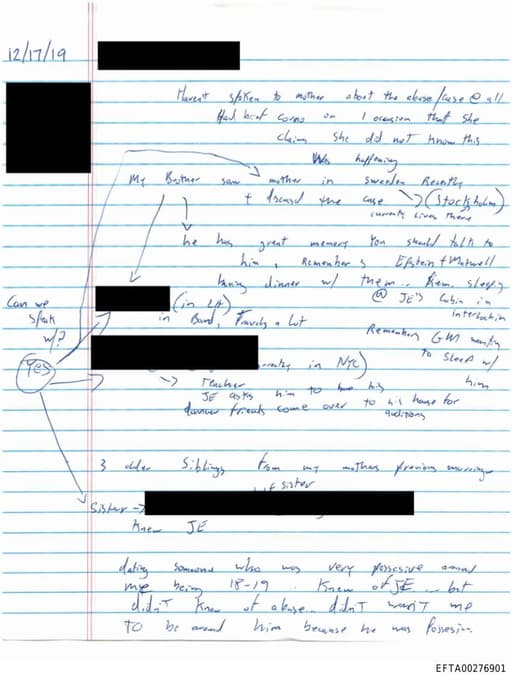 12/17/19
Haven't spoken to mother about the abuse/case @ all
Had brief convo on 1 occasion that she
claims she did not know this
was happening
My Brother saw mother in sweden Recently
+ discussed the case → (Stockholm)
currently lives there
he has great memory You should talk to
him, Remembers Epstein + Maxwell
having dinner w/ them.. Rem. sleeping
@ JE's Cabin in
Interlochen
(in LA)
in Band, Travels a lot
Can we
speak
w/?
Yes
Remembers GM wanting
to sleep w/
him
in NYC)
→ Teacher
JE asks him to have his
dancer friends come over to his house for
auditions
3 older siblings from my mothers previous marriage
sister
Sister →
Knew JE
dating someone who was very possesive around
me being 18-19 .. Knew of JE .. but
didn't know of abuse.. didn't want me
to be around him because he was possesive.
EFTA00276901